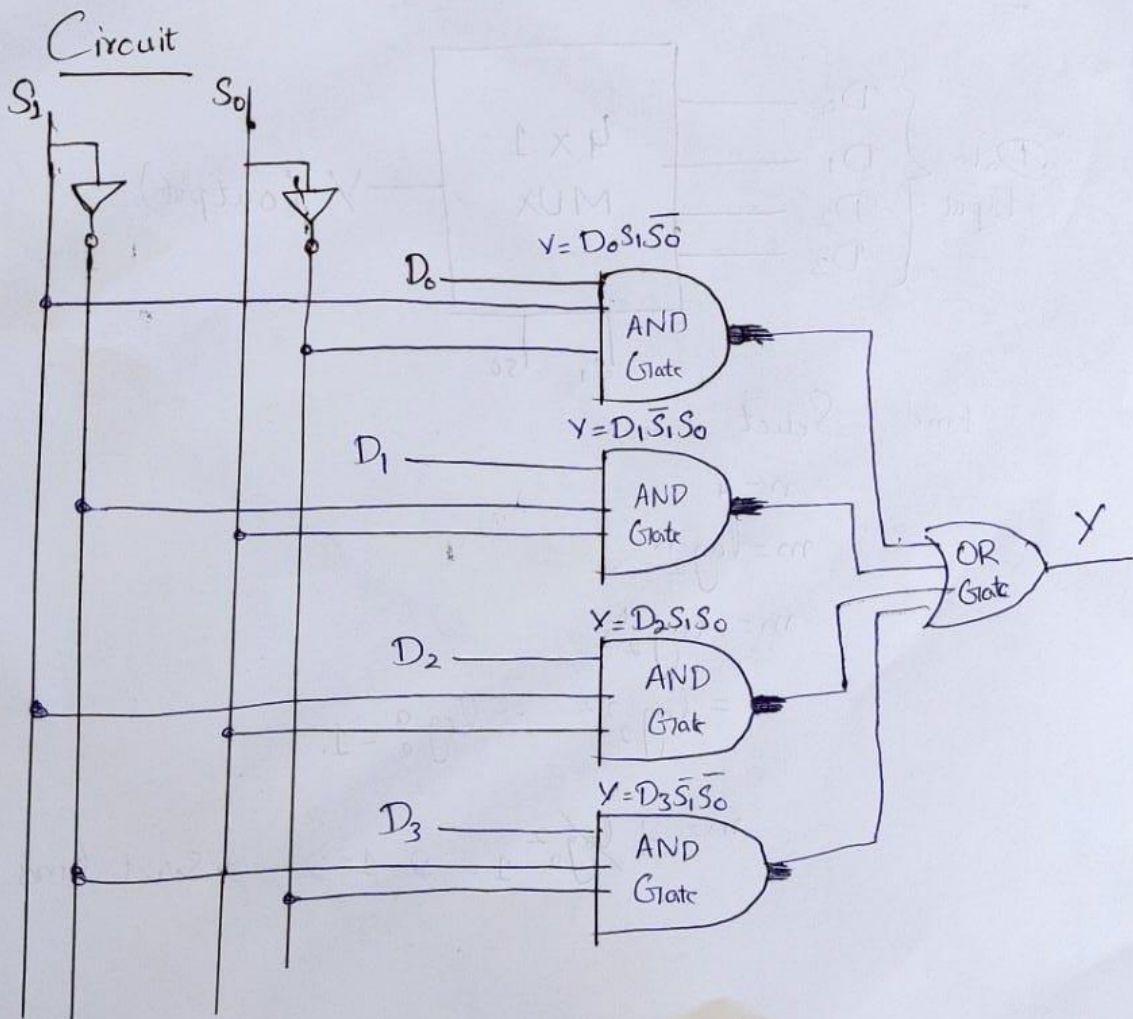 Circuit
S₁ S₀
Y = D₀S₁S̅₀
D₀
AND
Gate
Y = D₁S̅₁S₀
D₁
AND
Gate
Y
OR
Gate
Y = D₂S₁S₀
D₂
AND
Gate
Y = D₃S̅₁S̅₀
D₃
AND
Gate